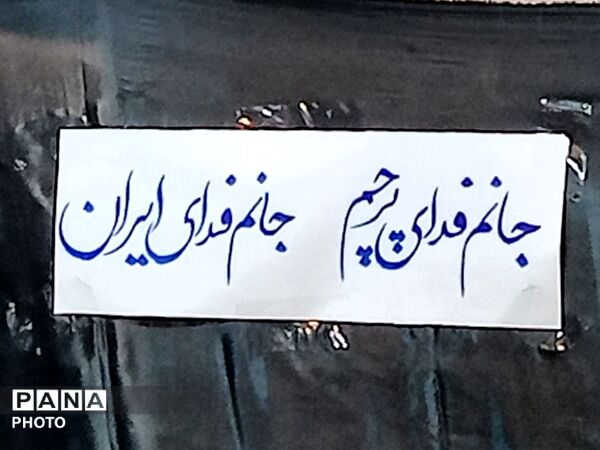 جانم فدای پرچم جانم فدای ایران
PANA
PHOTO